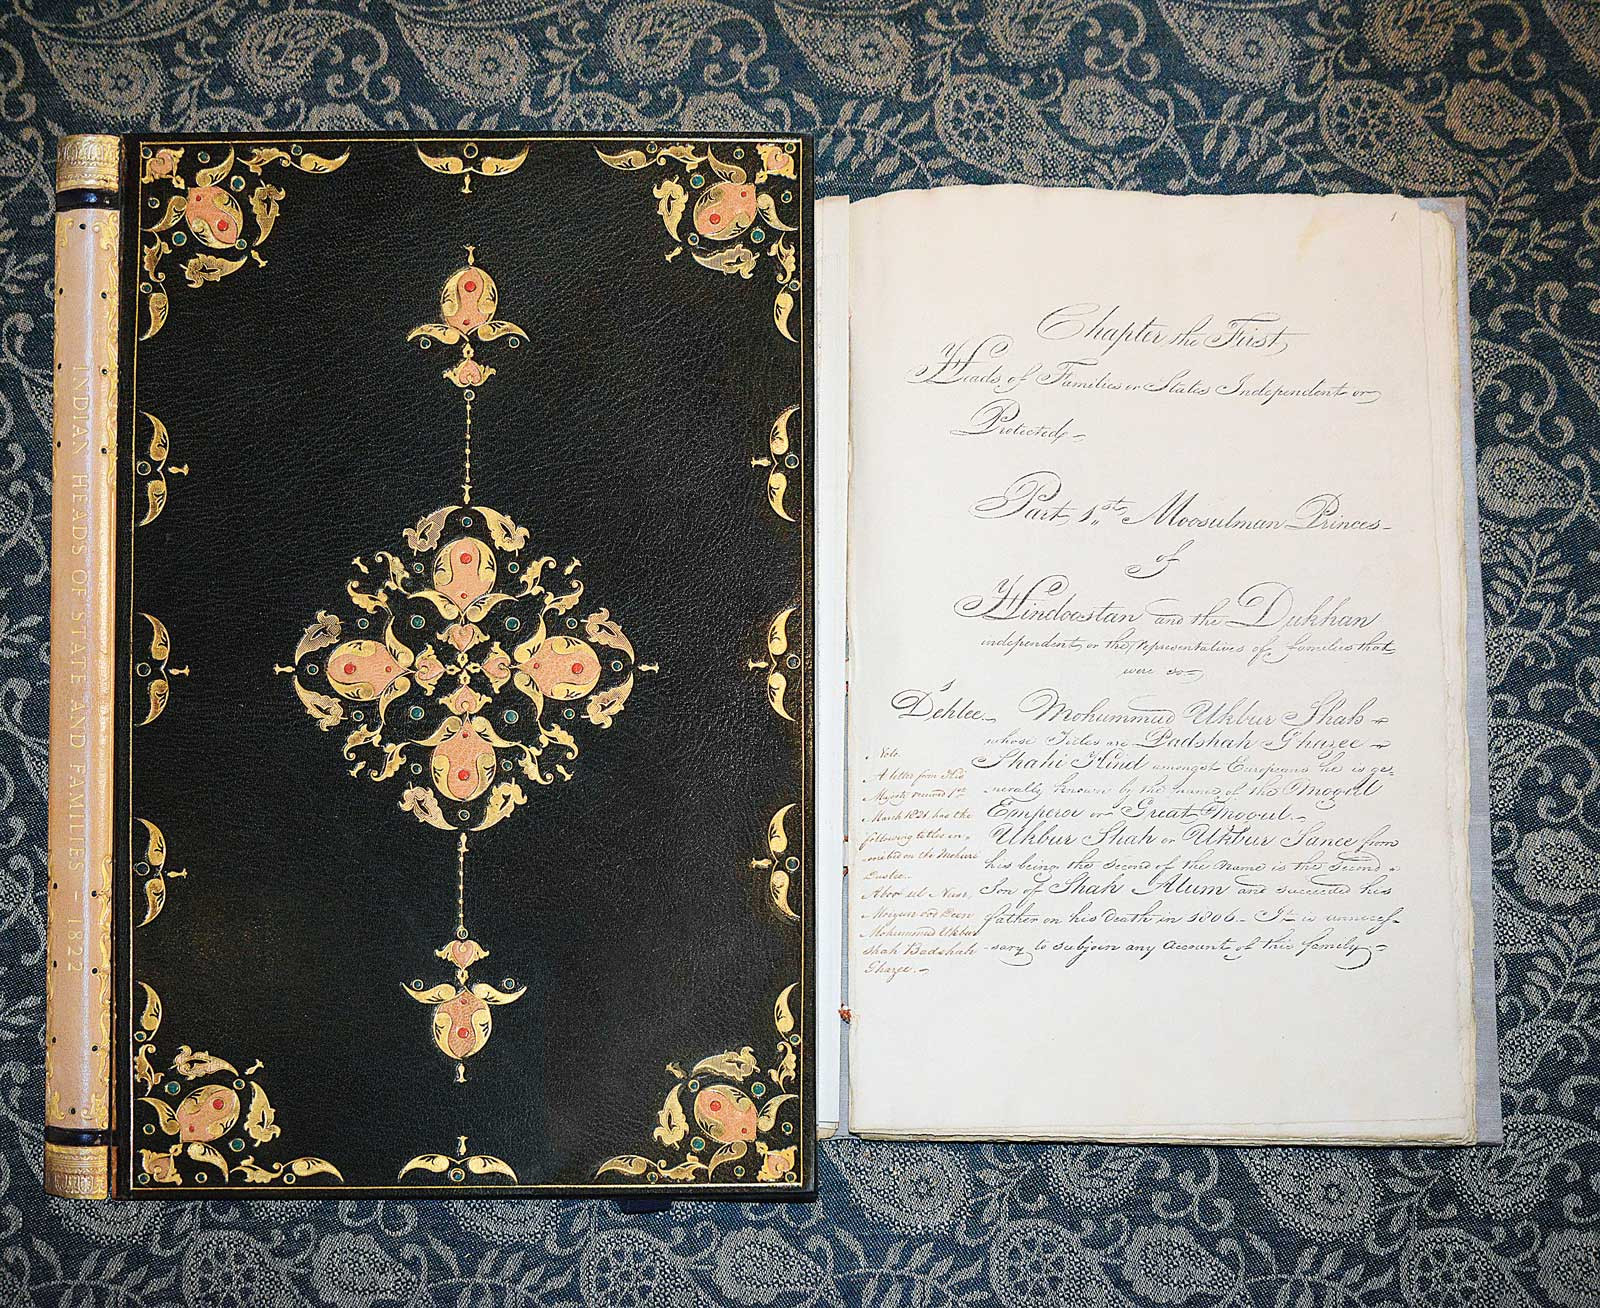 INDIAN HEADS OF STATE AND FAMILIES – 1822
1
Chapter the First
Heads of Families or States Independent or
Protected –
Part 1st Moosulman Princes –
of
Hindoostan and the Dukhan
independent or the representatives of families that
were so –
Dehlee – Mohummud Ukbur Shah –
whose Titles are Padshah Ghazee –
Shahi Hind amongst Europeans he is ge-
-nerally known by the name of the Mogul
Emperor or Great Mogul. –
Ukbur Shah or Ukbur Sanee from
his being the Second of the Name is the Second
Son of Shah Alum and succeeded his
father on his death in 1806 – It is unneces-
-sary to subjoin any account of this family –
Note
A letter from His
Majesty received 1st
March 1821 has the
following titles in-
on the Mohure
Aboo ul Nusr,
Moyen ood Deen
Mohummud Ukbur
Shah Badshah
Ghazee. –